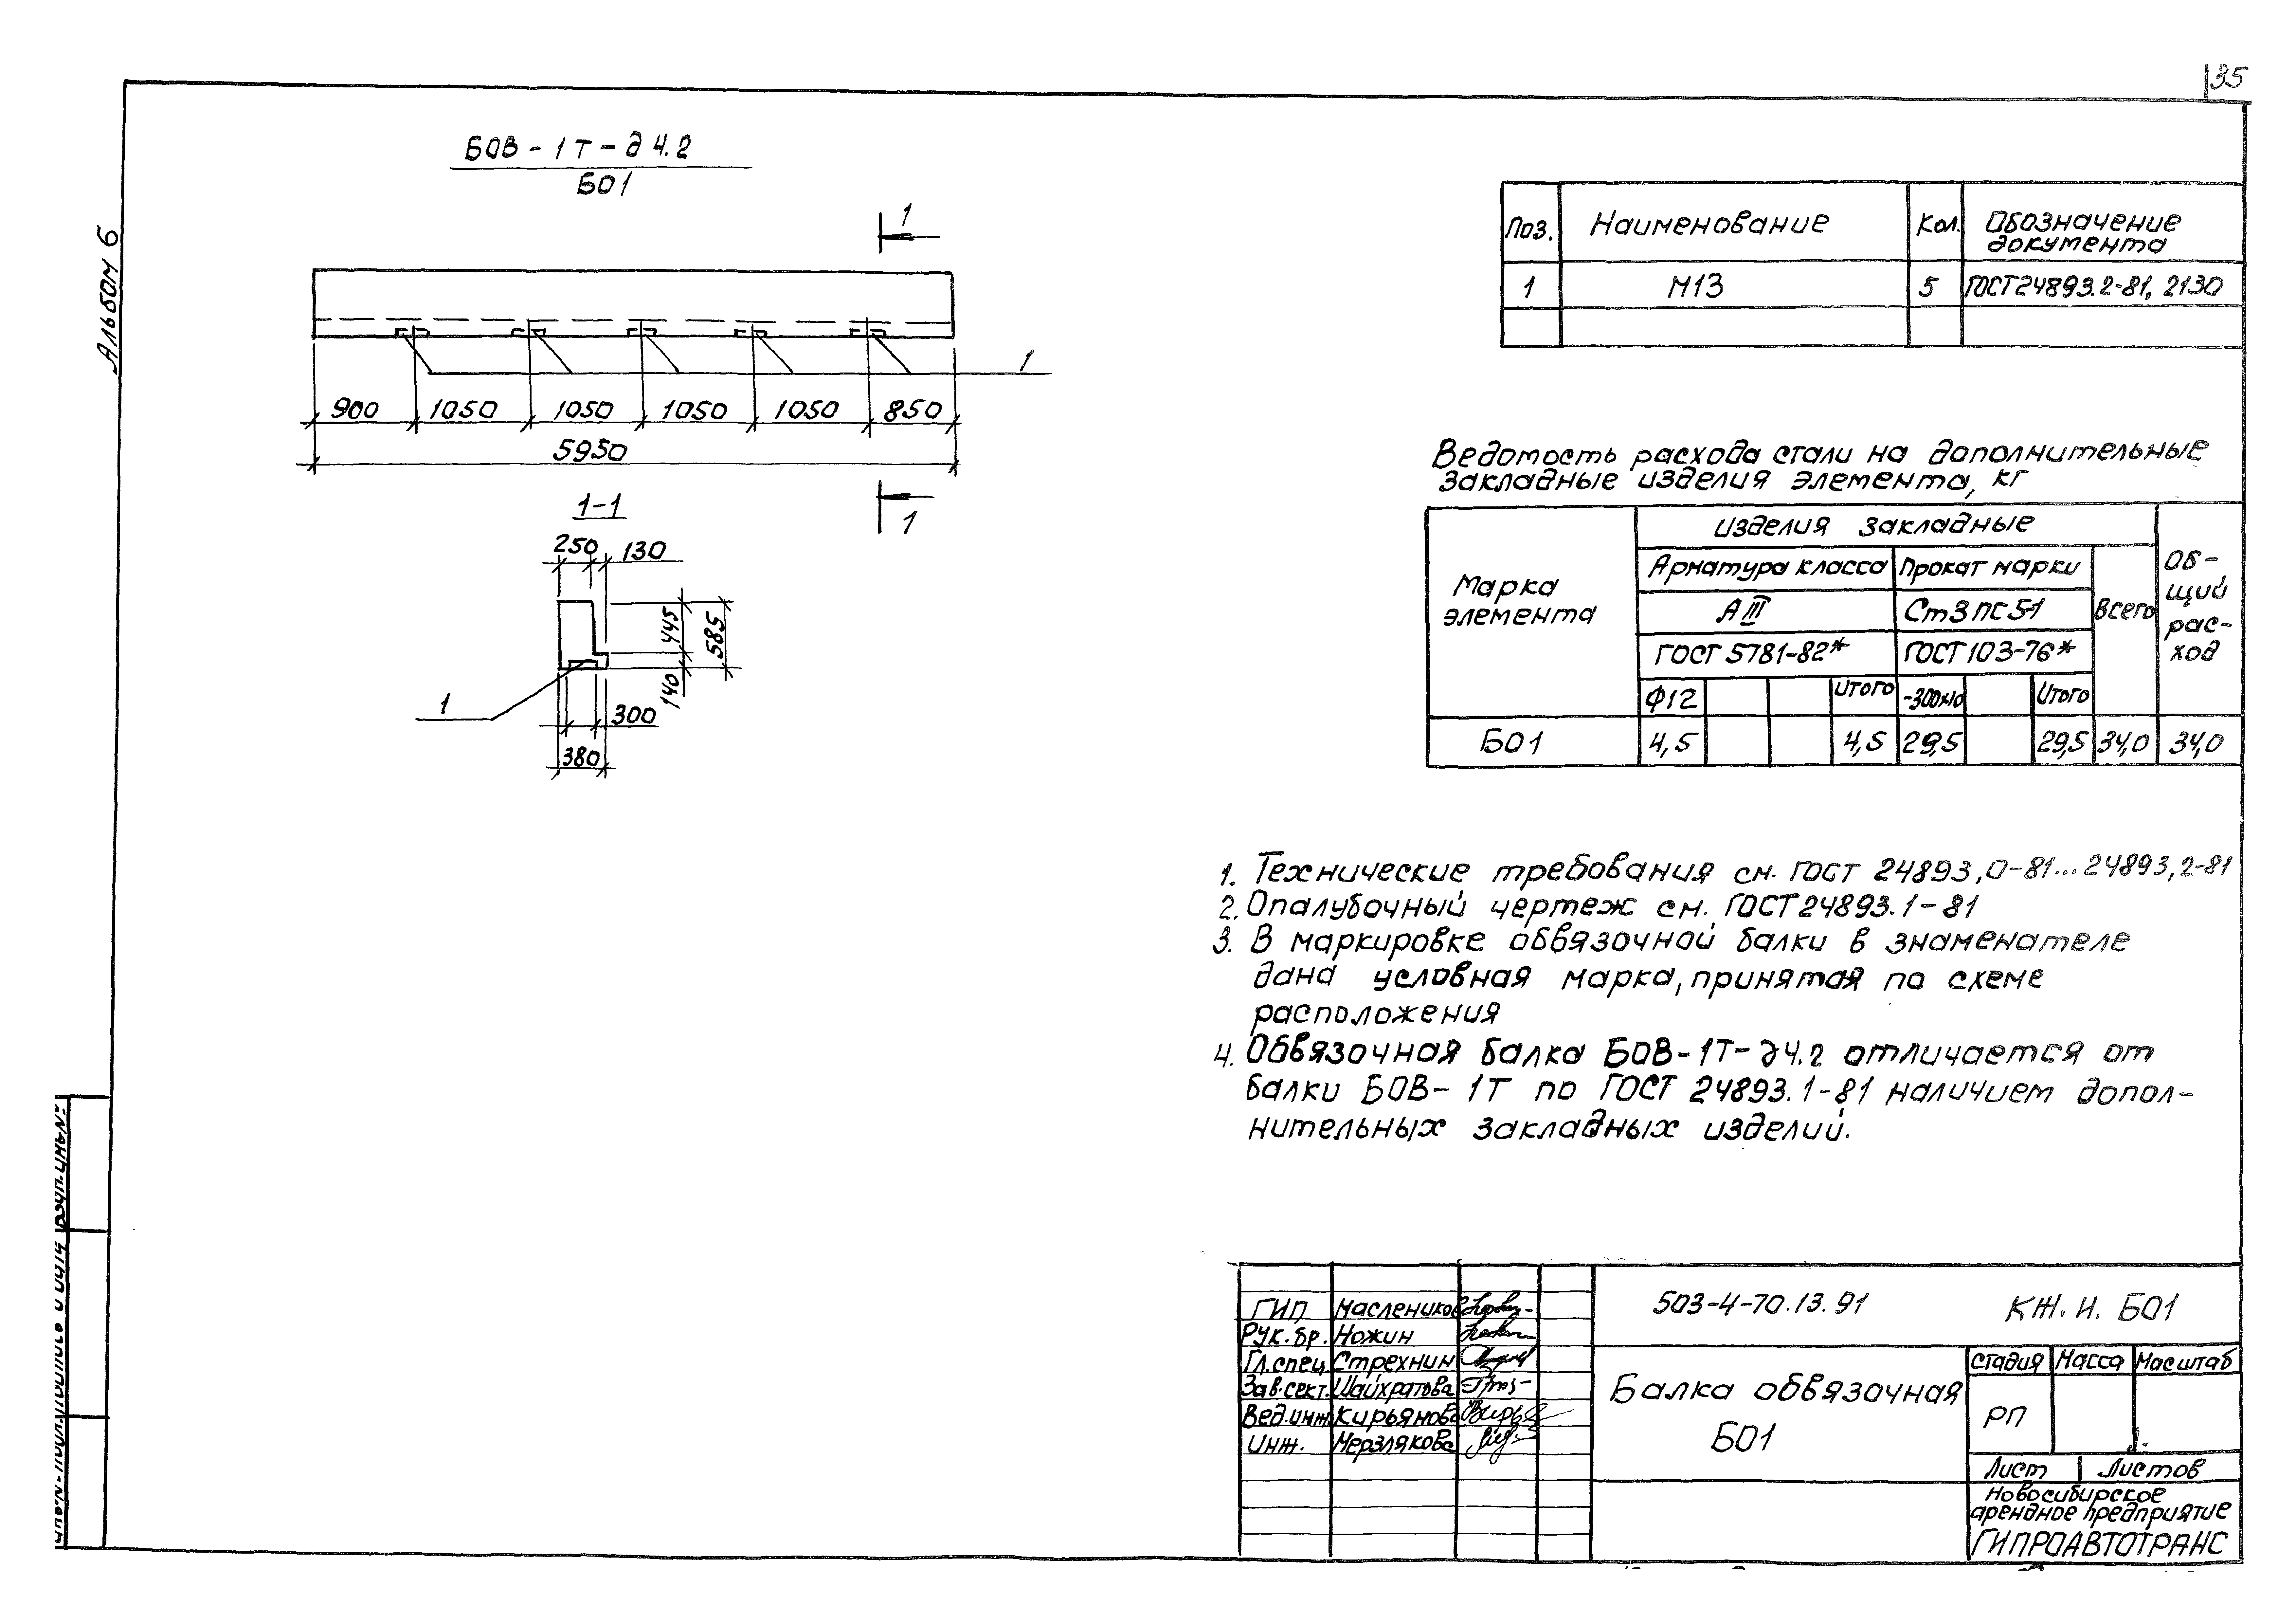 35
Альбом 6
БОВ-1Т-д4.2
БО1
1
1
900 1050 1050 1050 1050 850
5950
1
1-1
250 130
445
585
140
1
300
380
Поз. Наименование Кол. Обозначение документа
1 М13 5 ГОСТ 24893.2-81, 2130
Ведомость расхода стали на дополнительные
закладные изделия элемента, кг
Марка элемента
Изделия закладные
Общий расход
Арматура класса Прокат марки Всего
АIII Ст3пс5-1
ГОСТ 5781-82* ГОСТ 103-76*
Ф12 Итого -300х10 Итого
БО1 4,5 4,5 29,5 29,5 34,0 34,0
1. Технические требования см. ГОСТ 24893,0-81...24893,2-81
2. Опалубочный чертеж см. ГОСТ 24893.1-81
3. В маркировке обвязочной балки в знаменателе
дана условная марка, принятая по схеме
расположения
4. Обвязочная балка БОВ-1Т-д4.2 отличается от
балки БОВ-1Т по ГОСТ 24893.1-81 наличием допол-
нительных закладных изделий.
503-4-70.13.91 КЖ.И. БО1
ГИП Маслеников
Рук.бр. Ножин
Гл.спец. Стрехнин
Зав.сект. Шайхратова
Вед.инж. Кирьянова
Инж. Мерзлякова
Балка обвязочная
БО1
Стадия Масса Масштаб
РП
Лист Листов
Новосибирское
арендное предприятие
ГИПРОАВТОТРАНС